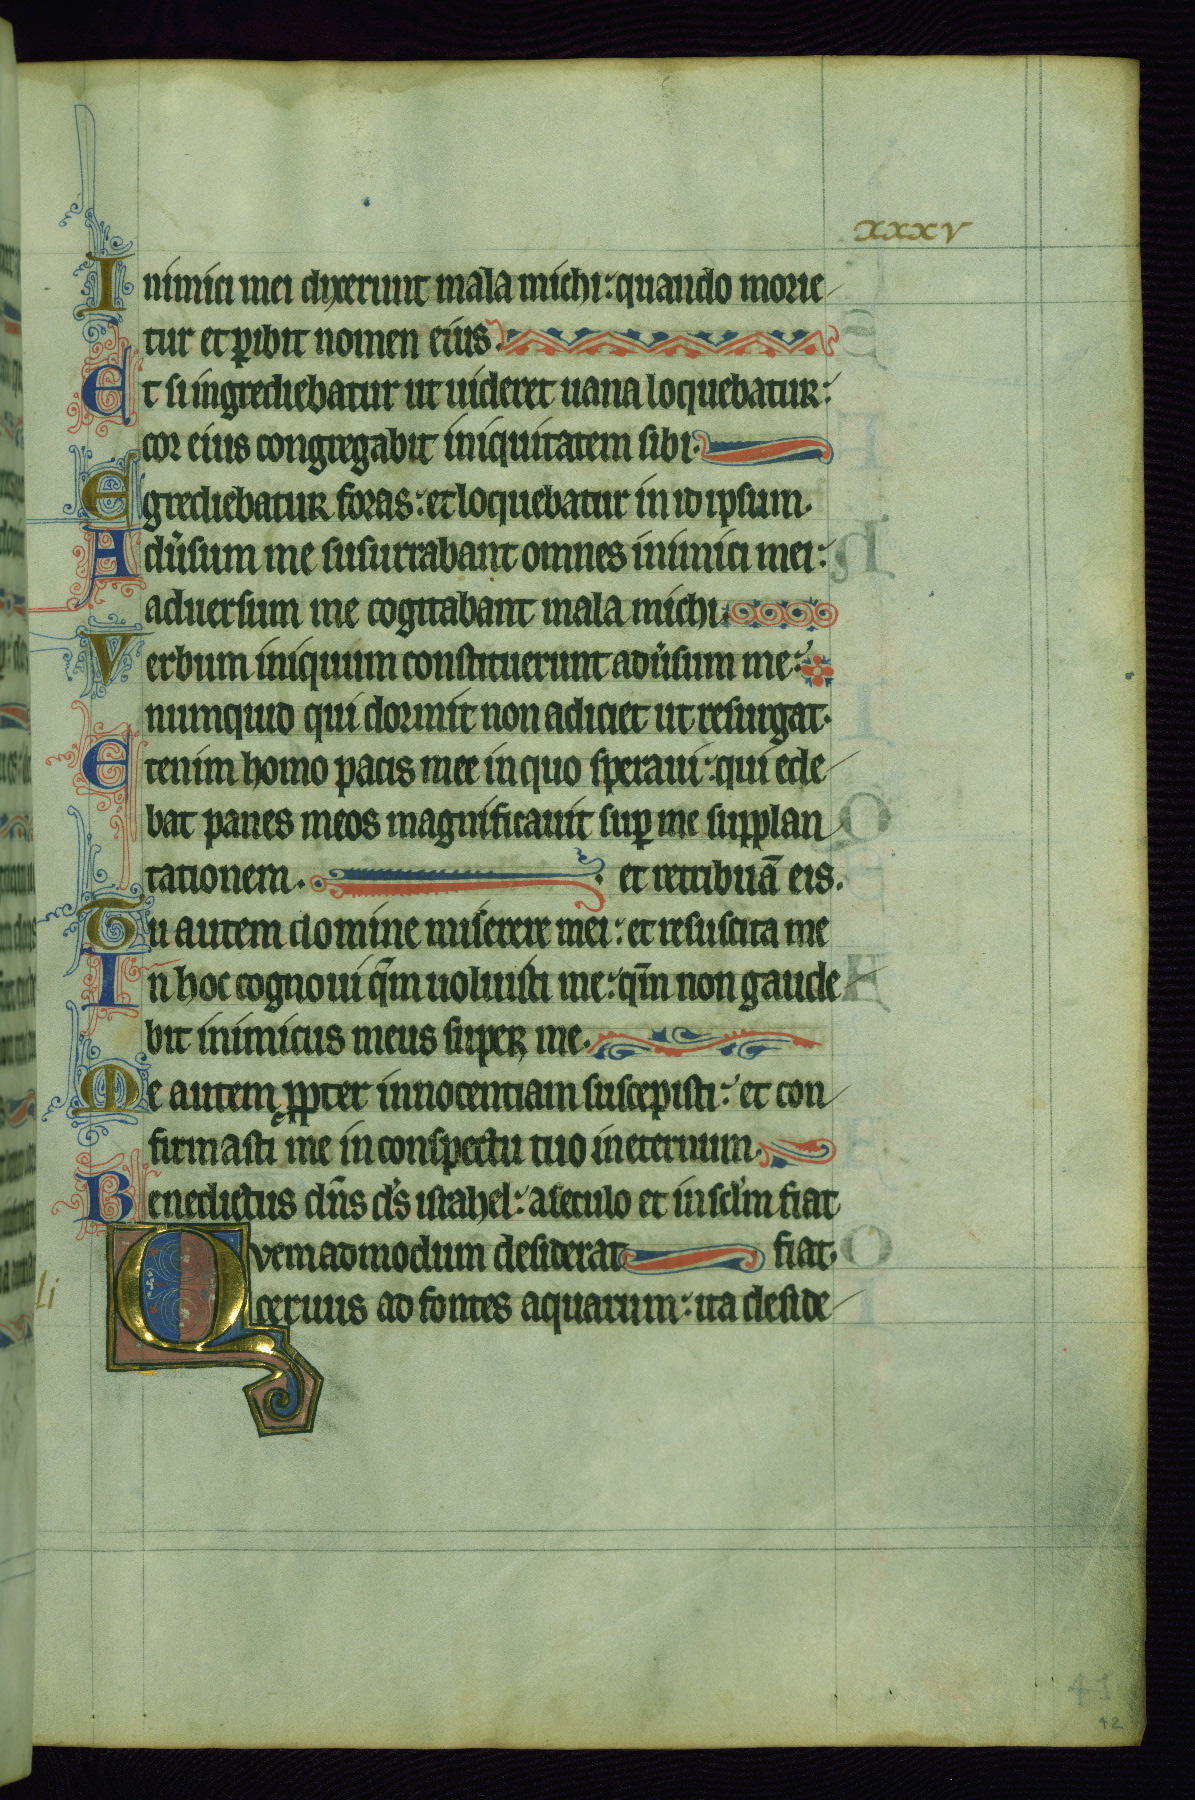 xxxv
Inimici mei dixerunt mala michi: quando morie
tur et p̲ibit nomen eius.
Et si ingrediebatur ut uideret uana loquebatur:
cor eius congregabit iniquitatem sibi.
Egrediebatur foras: et loquebatur in id ipsum.
Adũsum me susurrabant omnes inimici mei:
aduersum me cogitabant mala michi.
Verbum iniquum constituerunt adũsum me:
numquid qui dormit non adiciet ut resurgat.
Etenim homo pacis mee in quo speraui: qui ede
bat panes meos magnificauit sup̲ me supplan
tationem. et retribuã eis.
Tu autem domine miserere mei: et resuscita me
In hoc cognoui qm̃ uoluisti me: qm̃ non gaude
bit inimicus meus super me.
Me autem ꝓpter innocentiam suscepisti: et con
firmasti me in conspectu tuo in eternum.
Benedictus dñs d's israhel: a seculo et in sclm̃ fiat
Quemadmodum desiderat fiat.
ceruus ad fontes aquarum: ita deside
li
41
42